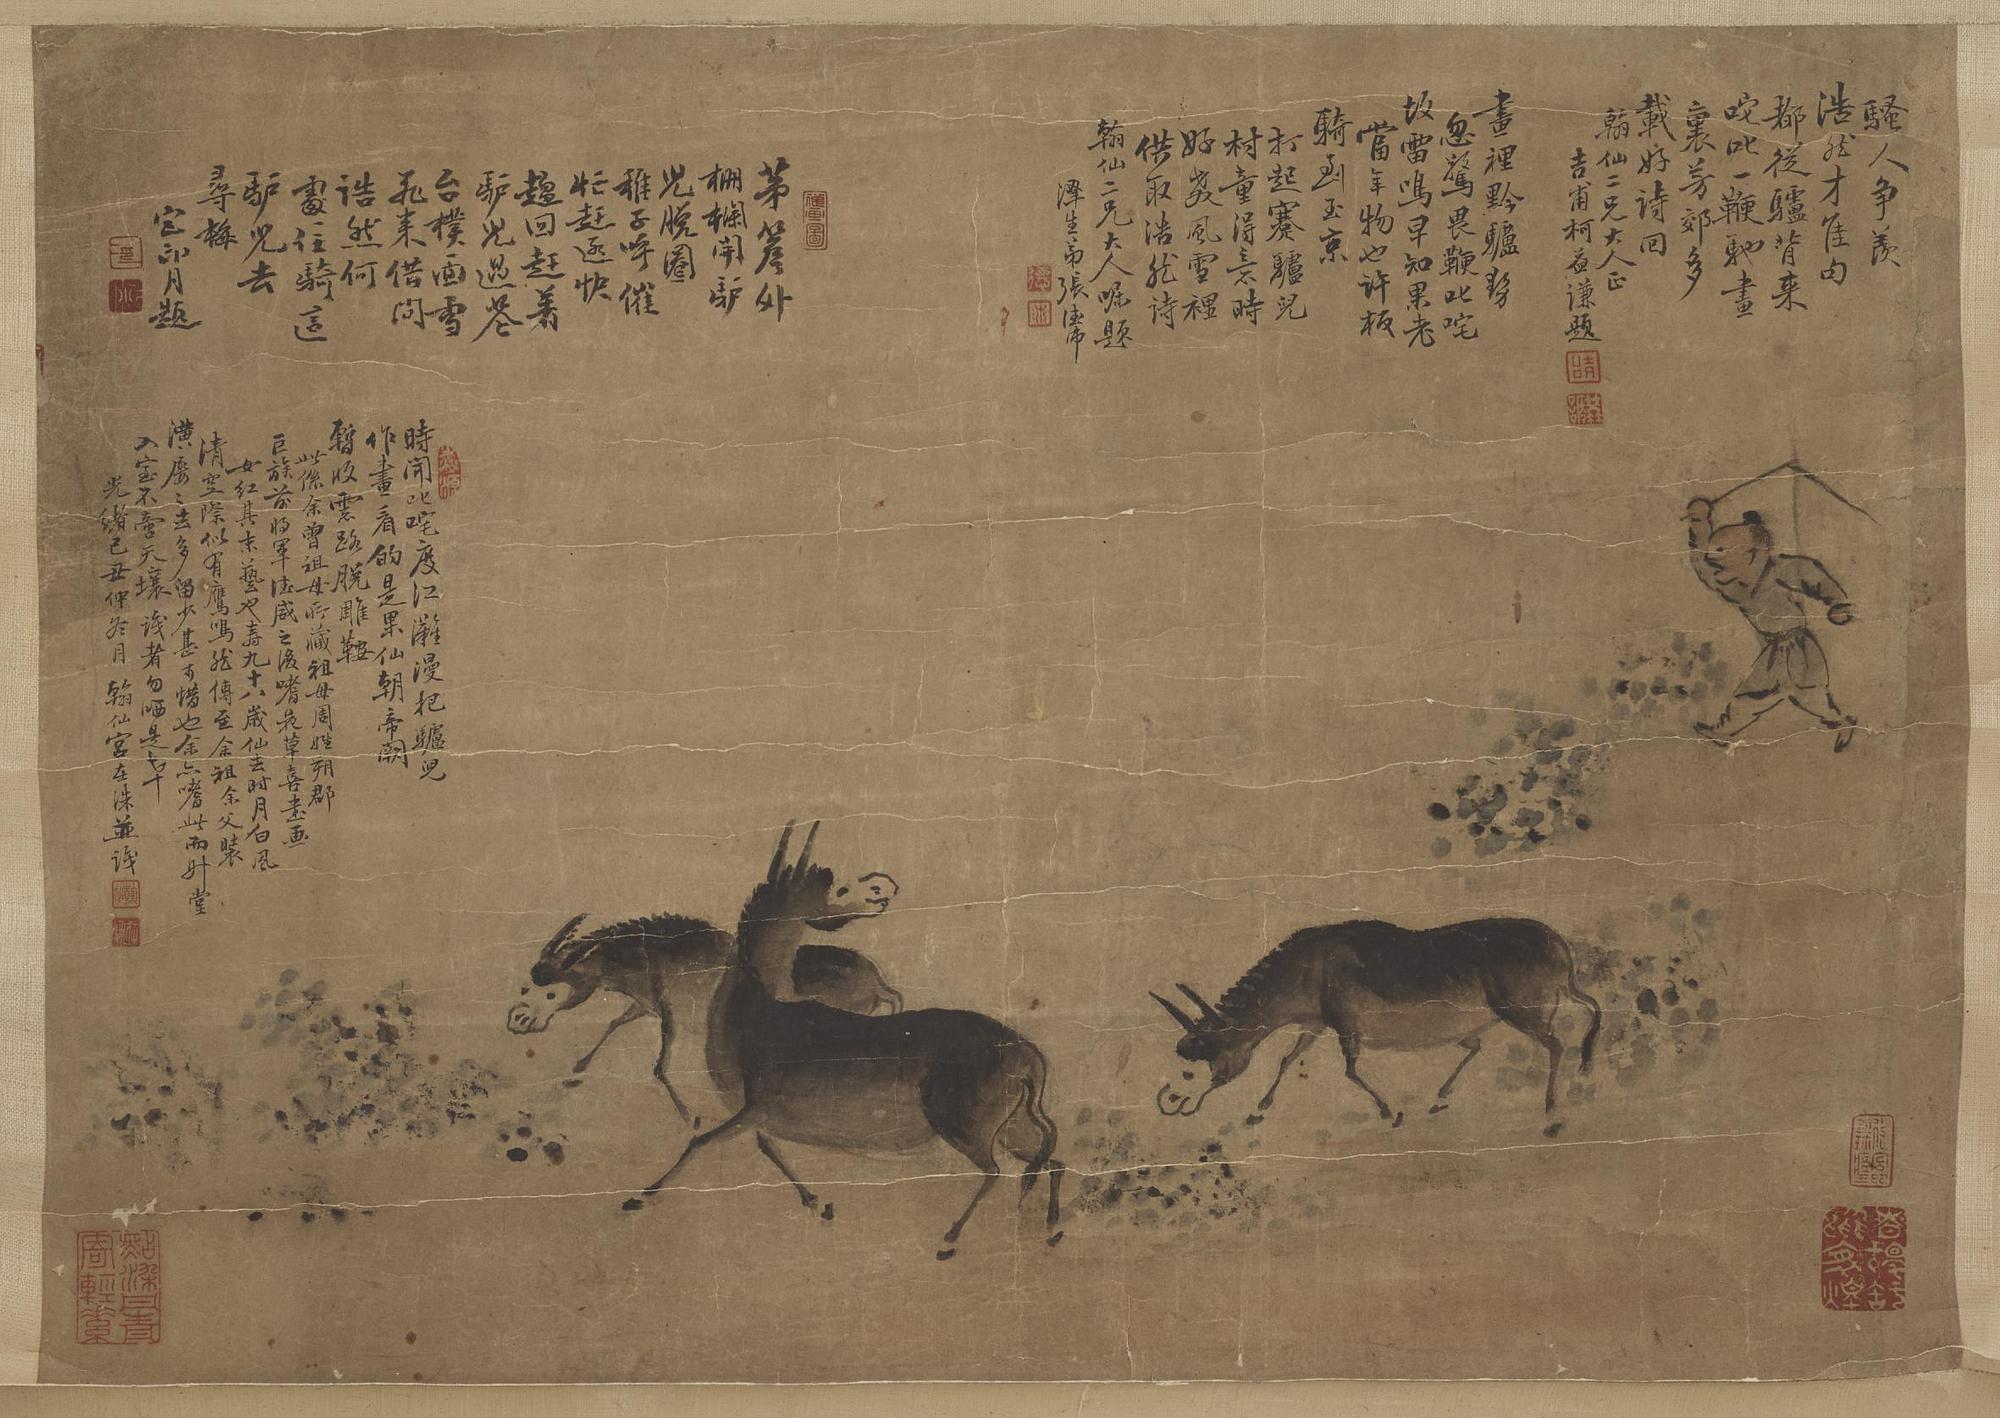 騷人争羨
浩然才佳句
都從驢背来
咤叱一鞭馳畫
裏芳郊多
載好詩回
翰仙二兄大人正
吉甫柯益谦題
畫裡黔驢努
忽驚畏鞭叱咤
坂雷鳴早知果老
當年物也许板
騎到玉京
打起蹇驢兒
村童得意時
好歹風雪裡
供取浩然诗
翰仙二兄大人嘱題
澤生弟張
茅簷外
栅欄開馿
兒脱圈
稚子呼催
忙赶逐快
趕回赶着
馿兒過
台樸面雪
飛来借問
浩然何
處往騎這
馿兒去
尋梅
月題
時聞叱咤度江灘漫把驢兒
作畫看的是果仙朝帝闕
暫收雲路脱雕鞍
此係余曾祖母所藏祖母周姓朔郡
巨族前将軍德威之後嗜蒔草喜畫画
女紅其末藝也寿九十八歲仙去时月白風
清空際似有鷹鳴然傳至余祖余父裝
潢屢之去多留少甚可惜也余亦嗜此而升堂
入室不啻天壤識者勿哂是幸
光緒己丑仲冬月翰仙宮在洙並識